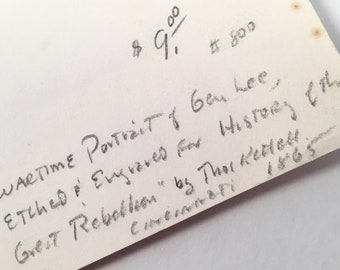 $ 9.00 # 800
WARTIME Portrait of Gen Lee,
Etched & Engraved for History of the
Great Rebellion" by Thos Kettell
Cincinnati 1865